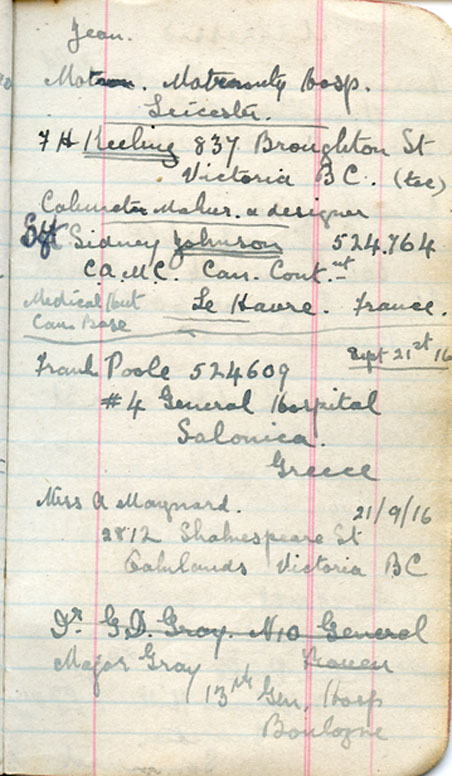 Jean.
Matron. Maternity Hosp.
Leicester.
F H Keeling 837 Broughton St
Victoria B C. (tec)
Cabineter Maker. a designer
Sgt Sidney Johnson 524.764
C.A.M.C. Can. Cont.nt
Medical Hut Le Havre. France.
Cans Base
Sept 21st 16
Frank Poole 524609
#4 General Hospital
Salonica.
Greece
Miss A Maynard. 21/9/16
2812 Shakespeare St
Oaklands Victoria BC
Dr. G.D. Gray. No 10 General
Major Gray Rouen
13th Gen. Hosp
Boulogne